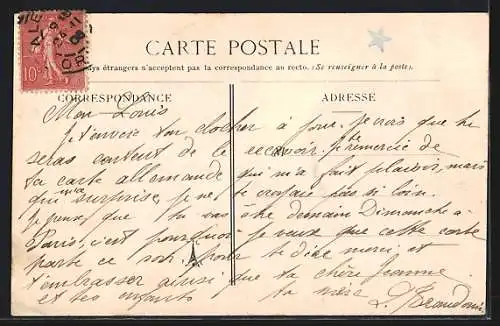 CARTE POSTALE
pays étrangers n'acceptent pas la correspondance au recto. (Se renseigner à la poste).
CORRESPONDANCE
ADRESSE
10c
Mon Louis
Je t'envoie ton clocher à jour. Je crois que tu
seras content de le recevoir. Je te remercie de
ta carte allemande qui m'a fait plaisir, mais
qui m'a surprise, je ne te croyais pas si loin.
Je peux que tu vas être demain Dimanche à
Paris, c'est pourquoi je veux que cette carte
parte ce soir pour te dire merci et
t'embrasser ainsi que ta chère femme
et tes enfants ta mère